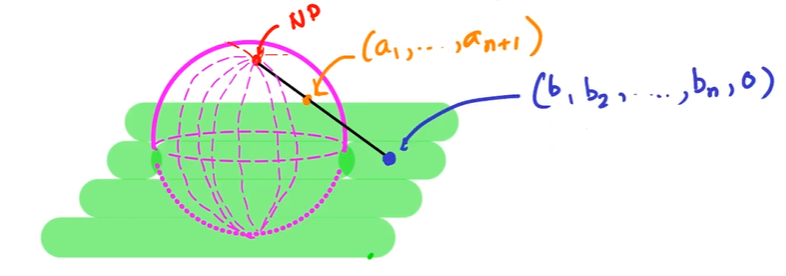 NP
(a₁, ..., aₙ₊₁)
(b₁ b₂, ...., bₙ, 0)